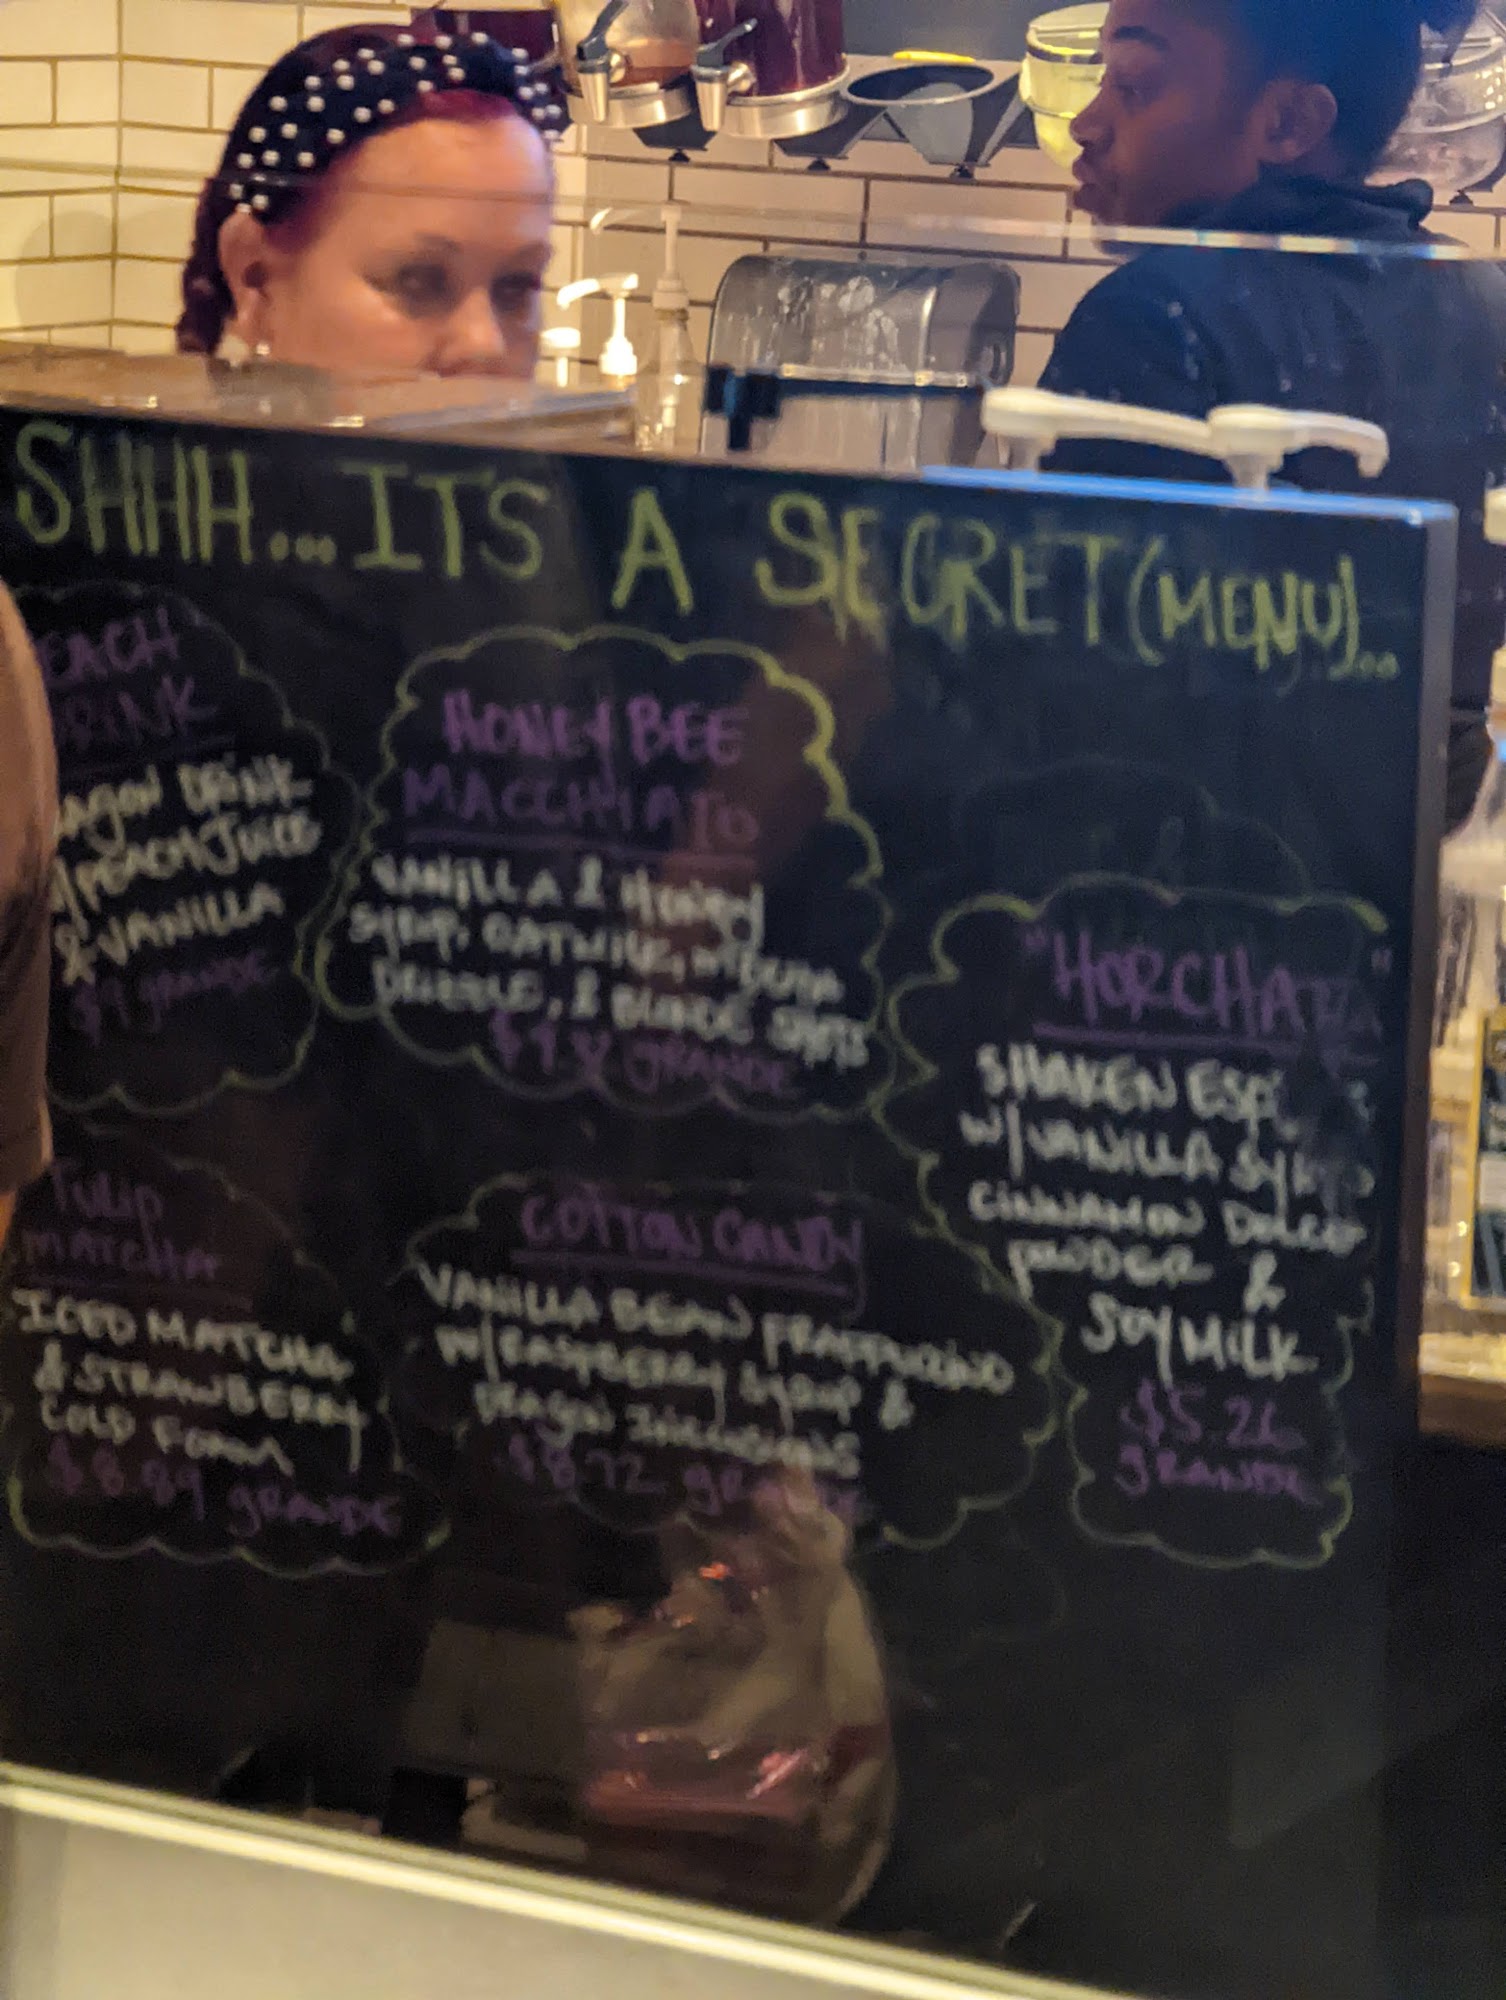 SHHH...ITS A SECRET (MENU)...
EACH
DRINK
AGON DRINK
W/PEACH JUICE
& VANILLA
grande
HONEY BEE
MACCHIATO
VANILLA & HONEY
SYRUP, OATMILK, MOCHA
DRIZZLE, & BLONDE SHOTS
grande
"HORCHATA"
SHAKEN ESP
W/VANILLA SYRUP
CINNAMON DOLCE
POWDER &
SOY MILK
$5.26
grande
TULIP
MATCHA
ICED MATCHA
& STRAWBERRY
COLD FOAM
$8.89 grande
COTTON CANDY
VANILLA BEAN FRAPPUCINO
W/RASPBERRY SYRUP &
DRAGON INCLUSIONS
$8.72 grande